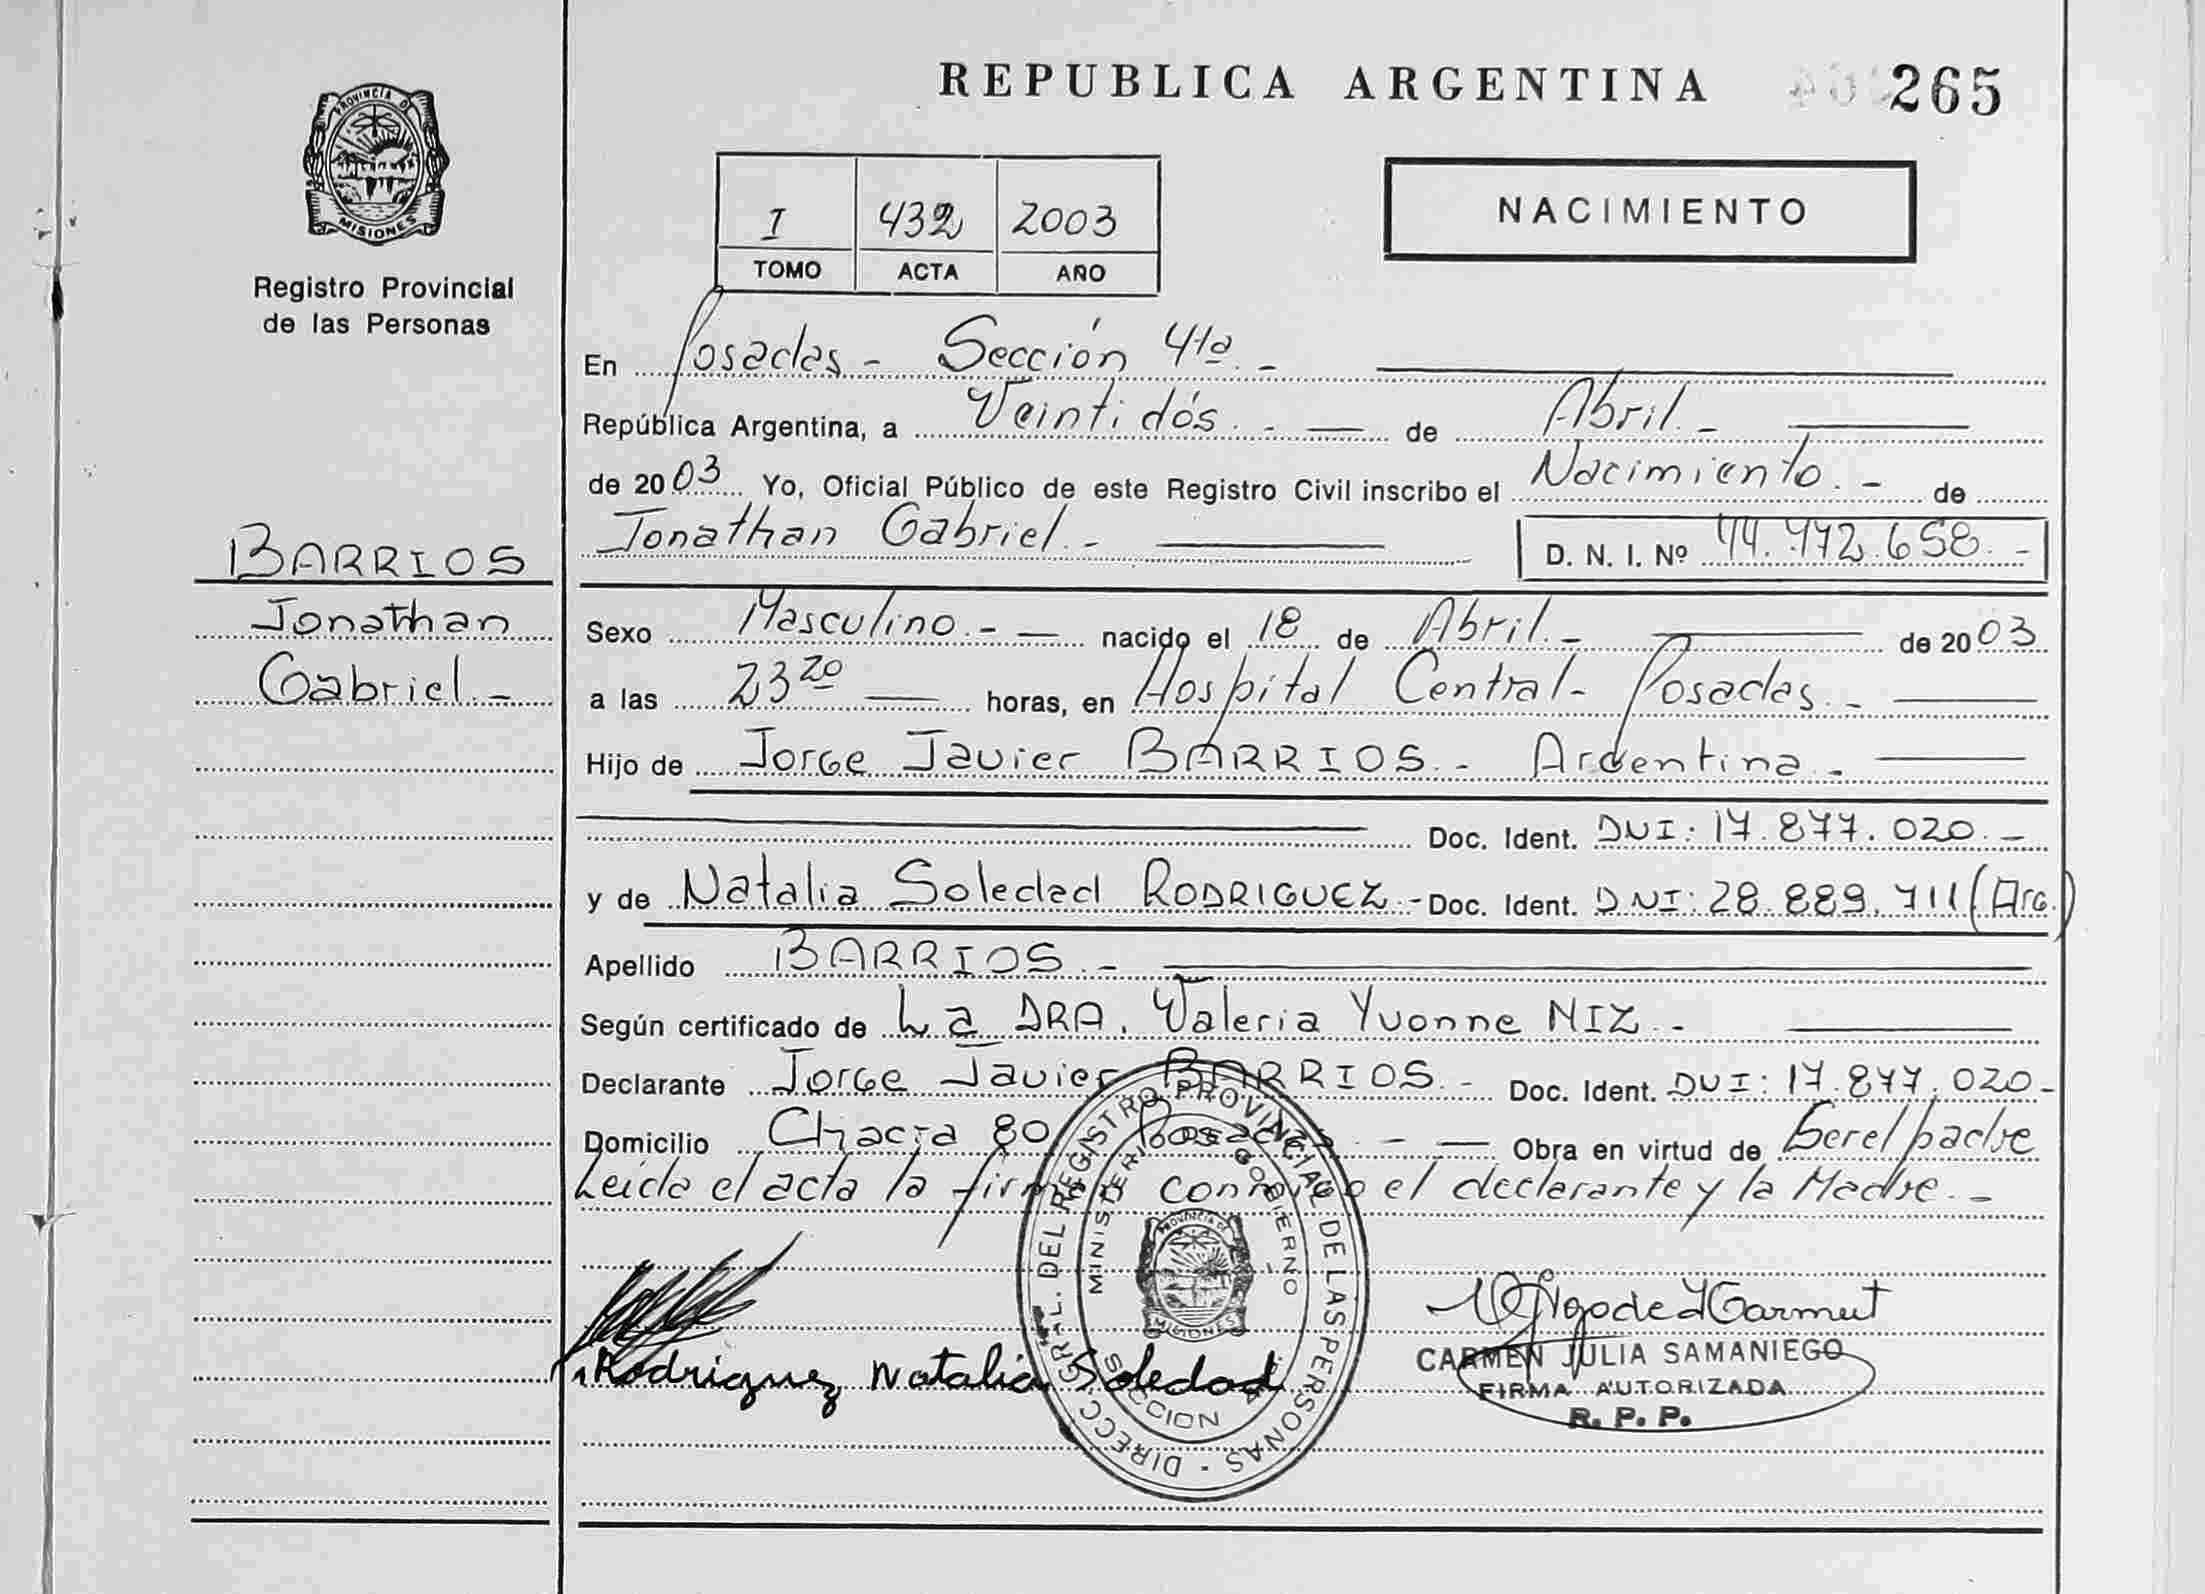 REPUBLICA ARGENTINA 265
PROVINCIA DE
MISIONES
Registro Provincial
de las Personas
I 432 2003
TOMO ACTA AÑO
NACIMIENTO
En Posadas - Sección 4ta. -
República Argentina, a Veintidós. - de Abril. -
de 2003 Yo, Oficial Público de este Registro Civil inscribo el Nacimiento. - de
Jonathan Gabriel. - D. N. I. Nº 44.472.658. -
BARRIOS
Jonathan
Gabriel. -
Sexo Masculino. - nacido el 18 de Abril. - de 2003
a las 23 20 horas, en Hospital Central - Posadas. -
Hijo de Jorge Javier BARRIOS. - Argentina. -
Doc. Ident. DNI: 17.877.020. -
y de Natalia Soledad RODRIGUEZ. - Doc. Ident. DNI: 28.889.711 (Arg.)
Apellido BARRIOS. -
Según certificado de La DRA. Valeria Yvonne NIZ. -
Declarante Jorge Javier BARRIOS. - Doc. Ident. DNI: 17.877.020 -
Domicilio Chacra 80 Posadas. - Obra en virtud de Ser el padre
Leída el acta la firman conmigo el declarante y la Madre. -
DIRECC. GRAL. DEL REGISTRO PROVINCIAL DE LAS PERSONAS -
MINISTERIO GOBIERNO
PROVINCIA DE
MISIONES
SECCION
Rodriguez Natalia Soledad
CARMEN JULIA SAMANIEGO
FIRMA AUTORIZADA
R. P. P.